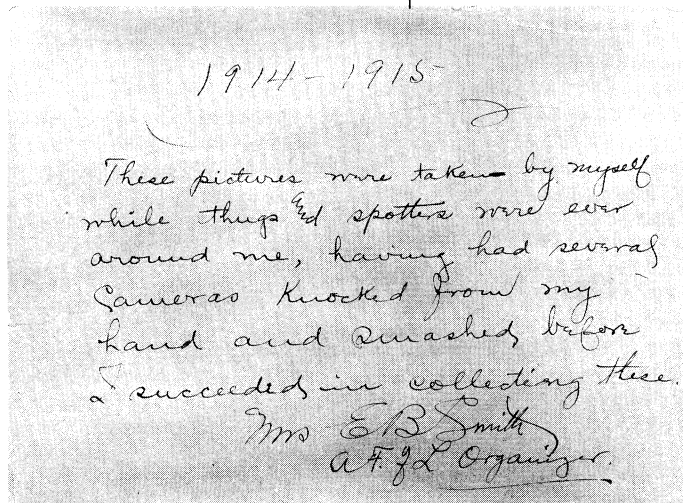 1914 - 1915
These pictures were taken by myself
while thugs and spotters were ever
around me, having had several
Cameras Knocked from my
hand and smashed before
I succeeded in collecting these.
Mrs E B Smith
A. F. of L Organizer.